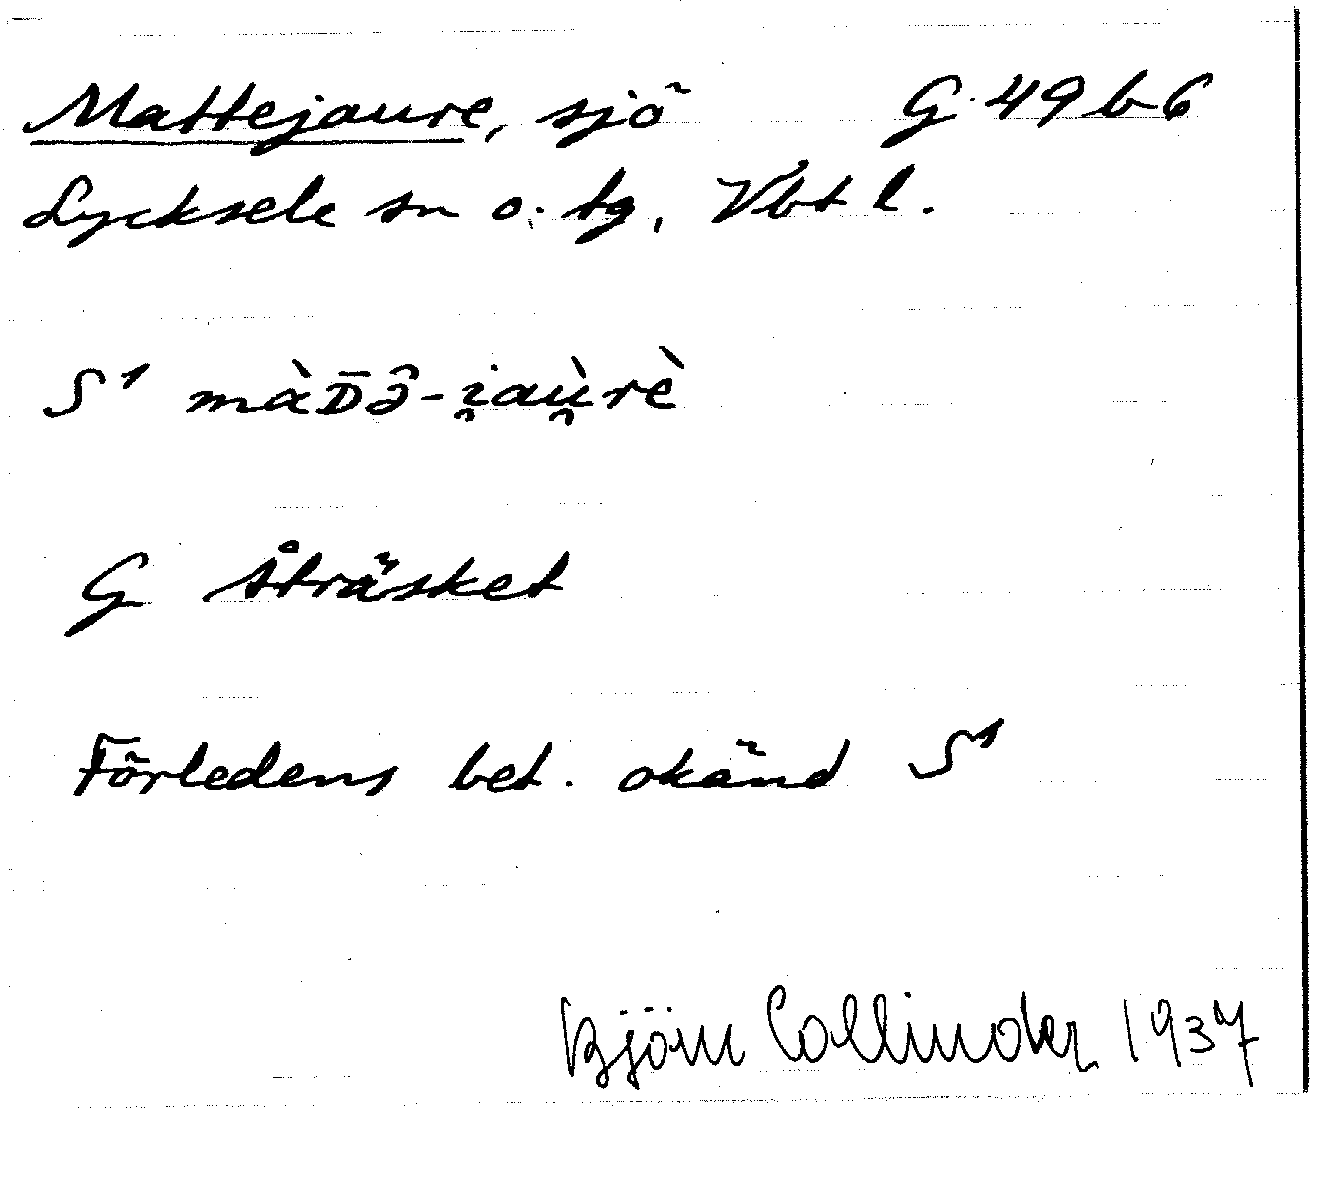 Mattejaure, sjö G. 49 b 6
Lycksele sn o. tg, Vbt l.
S¹ màD̄ə̂-i̯aù̯rè
G Åträsket
Förledens bet. okänd S¹
Björn Collinder 1937